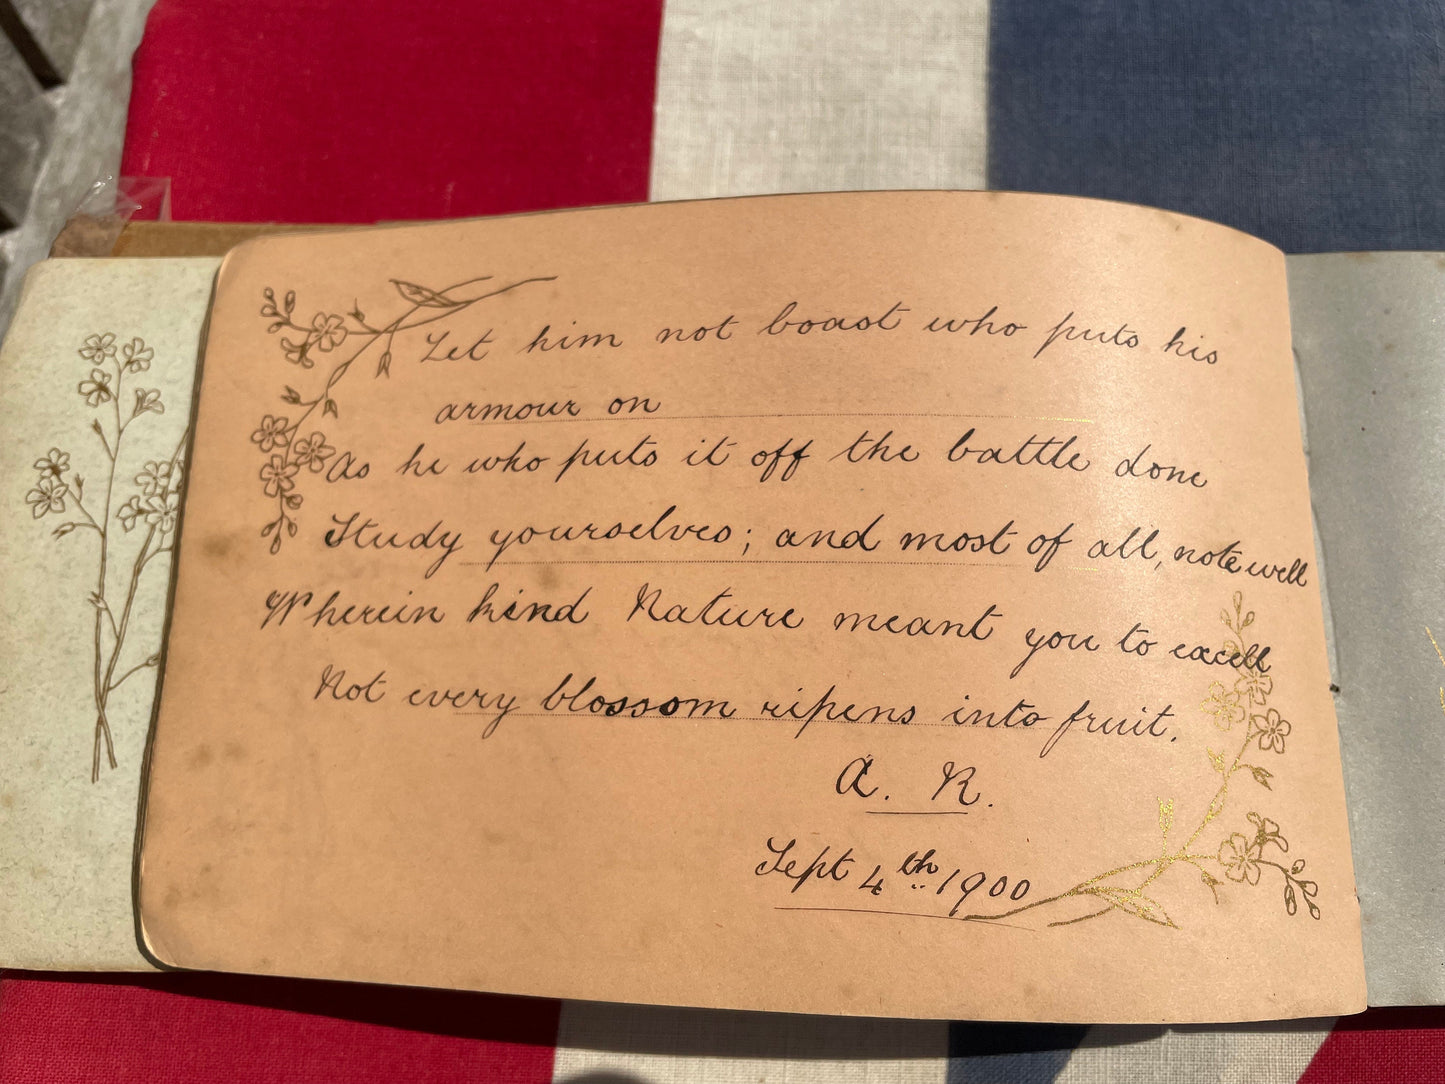 Let him not boast who puts his
armour on
As he who puts it off the battle done
Study yourselves; and most of all, note well
Wherein kind Nature meant you to excell
Not every blossom ripens into fruit.
A. R.
Sept 4th 1900